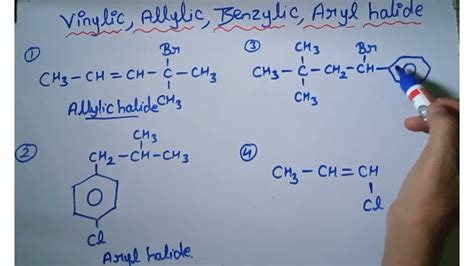 Vinylic, Allylic, Benzylic, Aryl halide
①
Br
CH₃-CH=CH-C-CH₃
CH₃
Allylic halide
③
CH₃ Br
CH₃-C-CH₂-CH-
CH₃
②
CH₃
CH₂-CH-CH₃
Cl
Aryl halide.
④
CH₃-CH=CH
Cl